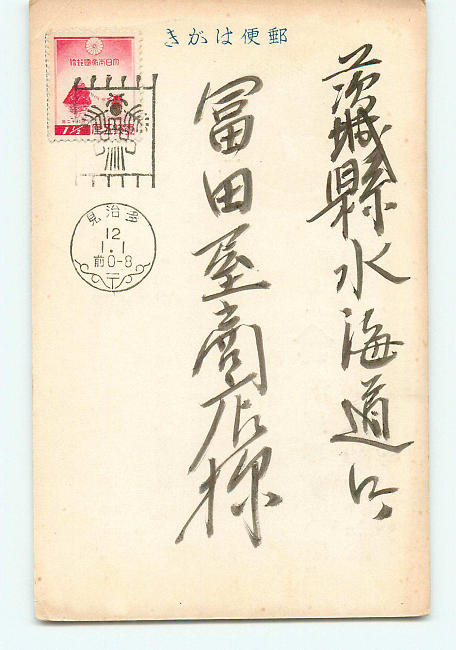 郵便はがき
茨城縣水海道町
冨田屋商店様
大日本帝國郵便
1½
多治見
12
1.1
前0-8
〒